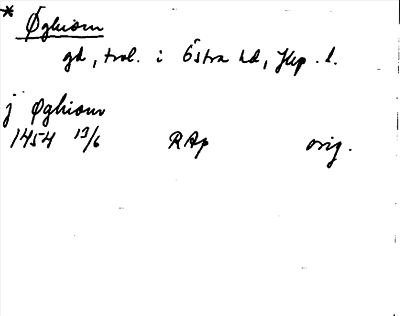 * Øghiom
gd, trol. i Östra hd, Jkp. l.
j Øghiom
1454 13/6 RAp orig.